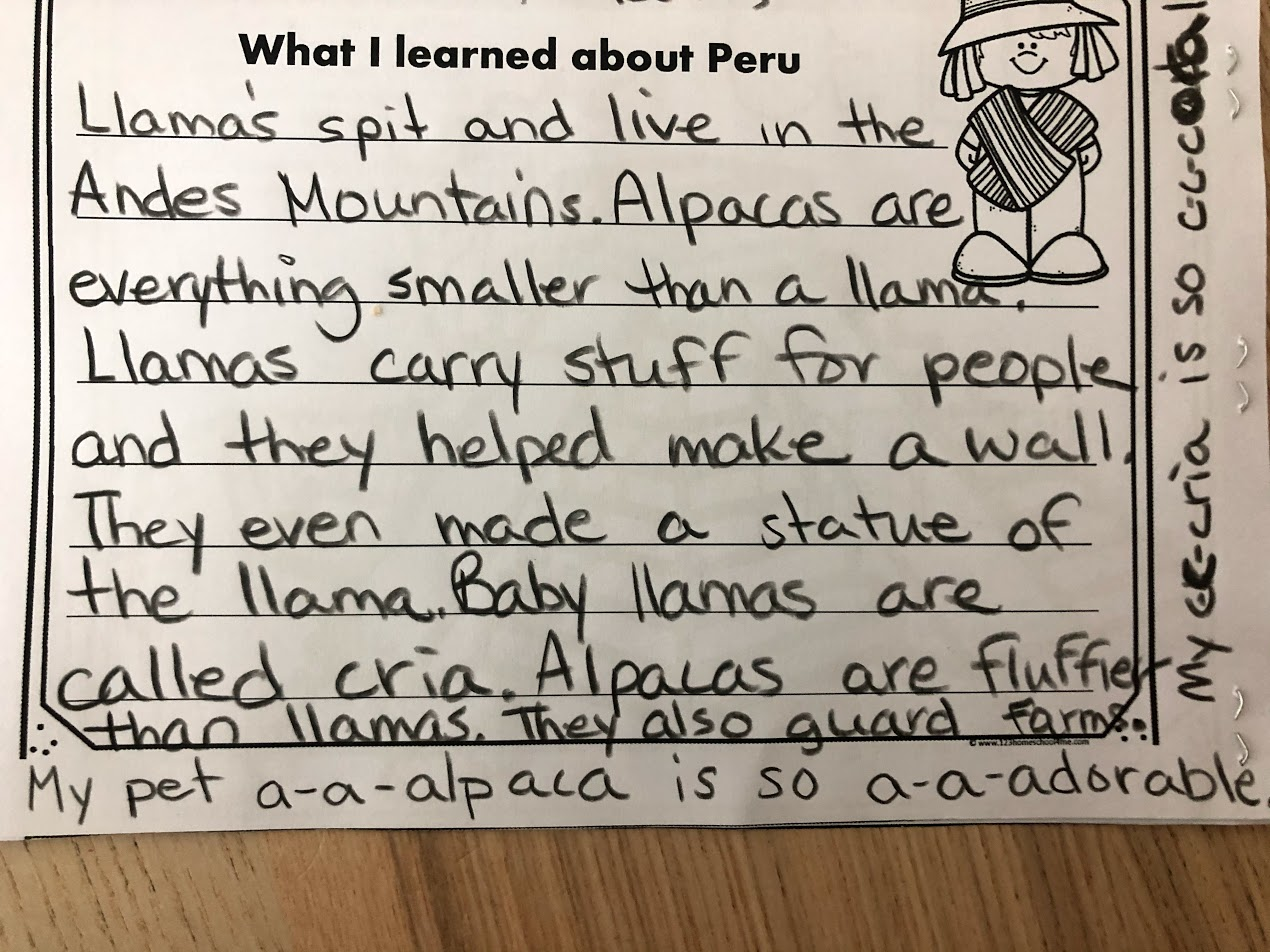 What I learned about Peru
Llama's spit and live in the
Andes Mountains. Alpacas are
everything smaller than a llama.
Llamas carry stuff for people
and they helped make a wall.
They even made a statue of
the llama. Baby llamas are
called cria. Alpacas are fluffier
than llamas. They also guard farms.
© www.123homeschool4me.com
My pet a-a-alpaca is so a-a-adorable.
My cr-cria is so